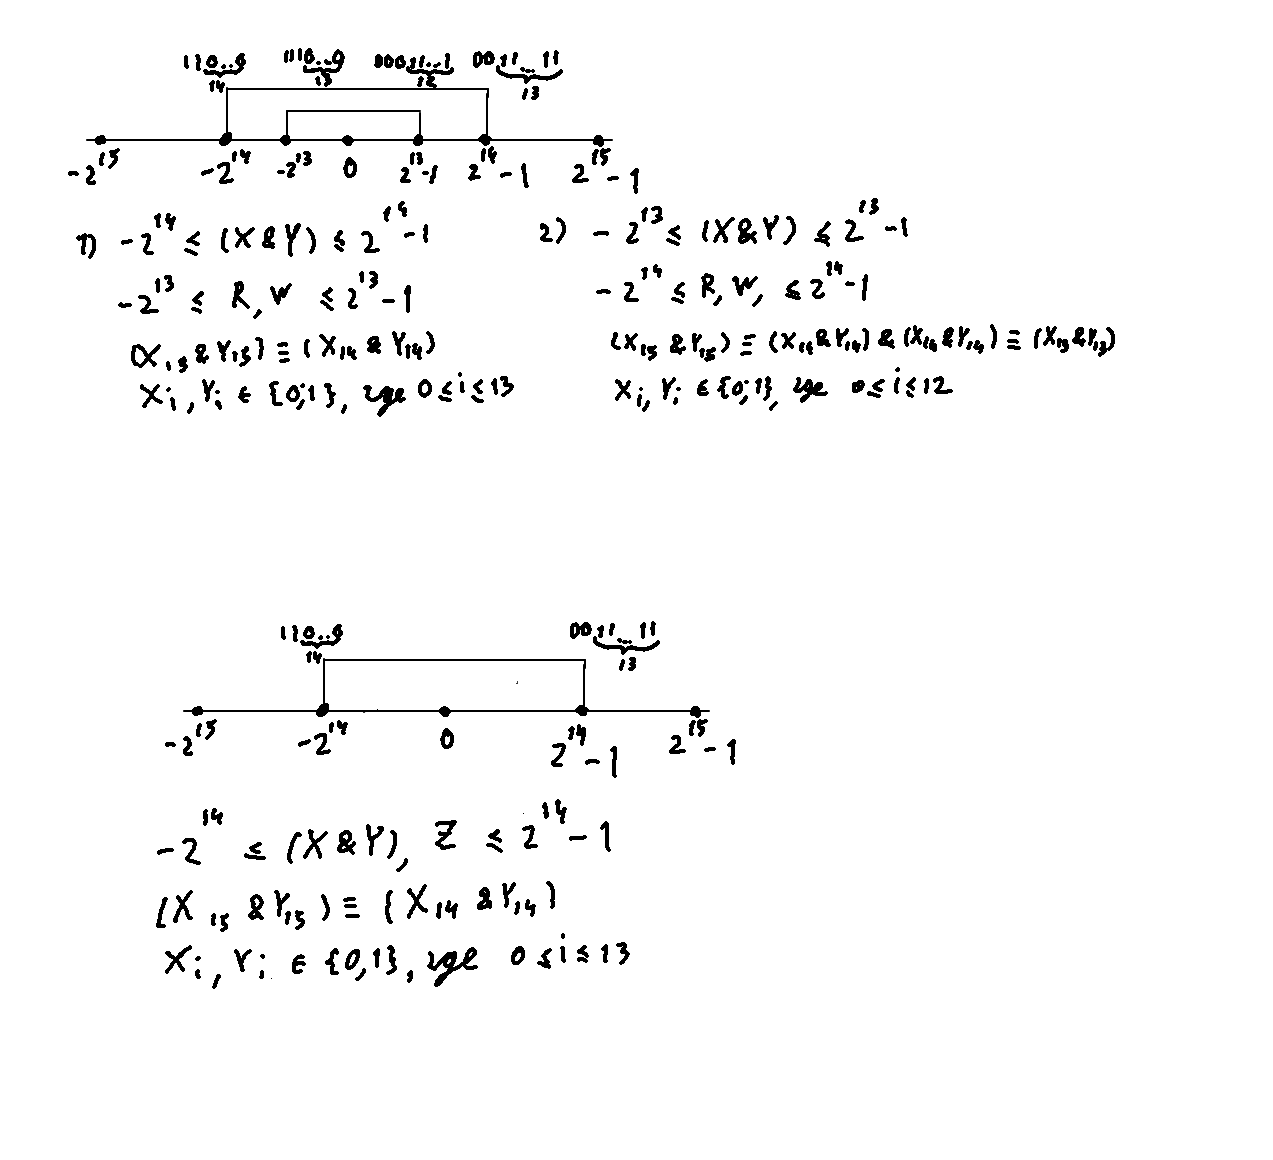 110..0 1110..0 00011..1 0011...11
14 13 12 13
-2^15 -2^14 -2^13 0 2^13-1 2^14-1 2^15-1
1) -2^14 ≤ (X & Y) ≤ 2^14-1
-2^13 ≤ R, W ≤ 2^13-1
(X₁₅ & Y₁₅) ≡ (X₁₄ & Y₁₄)
Xᵢ, Yᵢ ∈ {0;1}, где 0 ≤ i ≤ 13
2) -2^13 ≤ (X & Y) ≤ 2^13-1
-2^14 ≤ R, W, ≤ 2^14-1
(X₁₅ & Y₁₅) ≡ (X₁₄ & Y₁₄) & (X₁₄ & Y₁₄) ≡ (X₁₃ & Y₁₃)
Xᵢ, Yᵢ ∈ {0;1}, где 0 ≤ i ≤ 12
110..0 0011...11
14 13
-2^15 -2^14 0 2^14-1 2^15-1
-2^14 ≤ (X & Y), Z ≤ 2^14-1
(X₁₅ & Y₁₅) ≡ (X₁₄ & Y₁₄)
Xᵢ, Yᵢ ∈ {0,1}, где 0 ≤ i ≤ 13